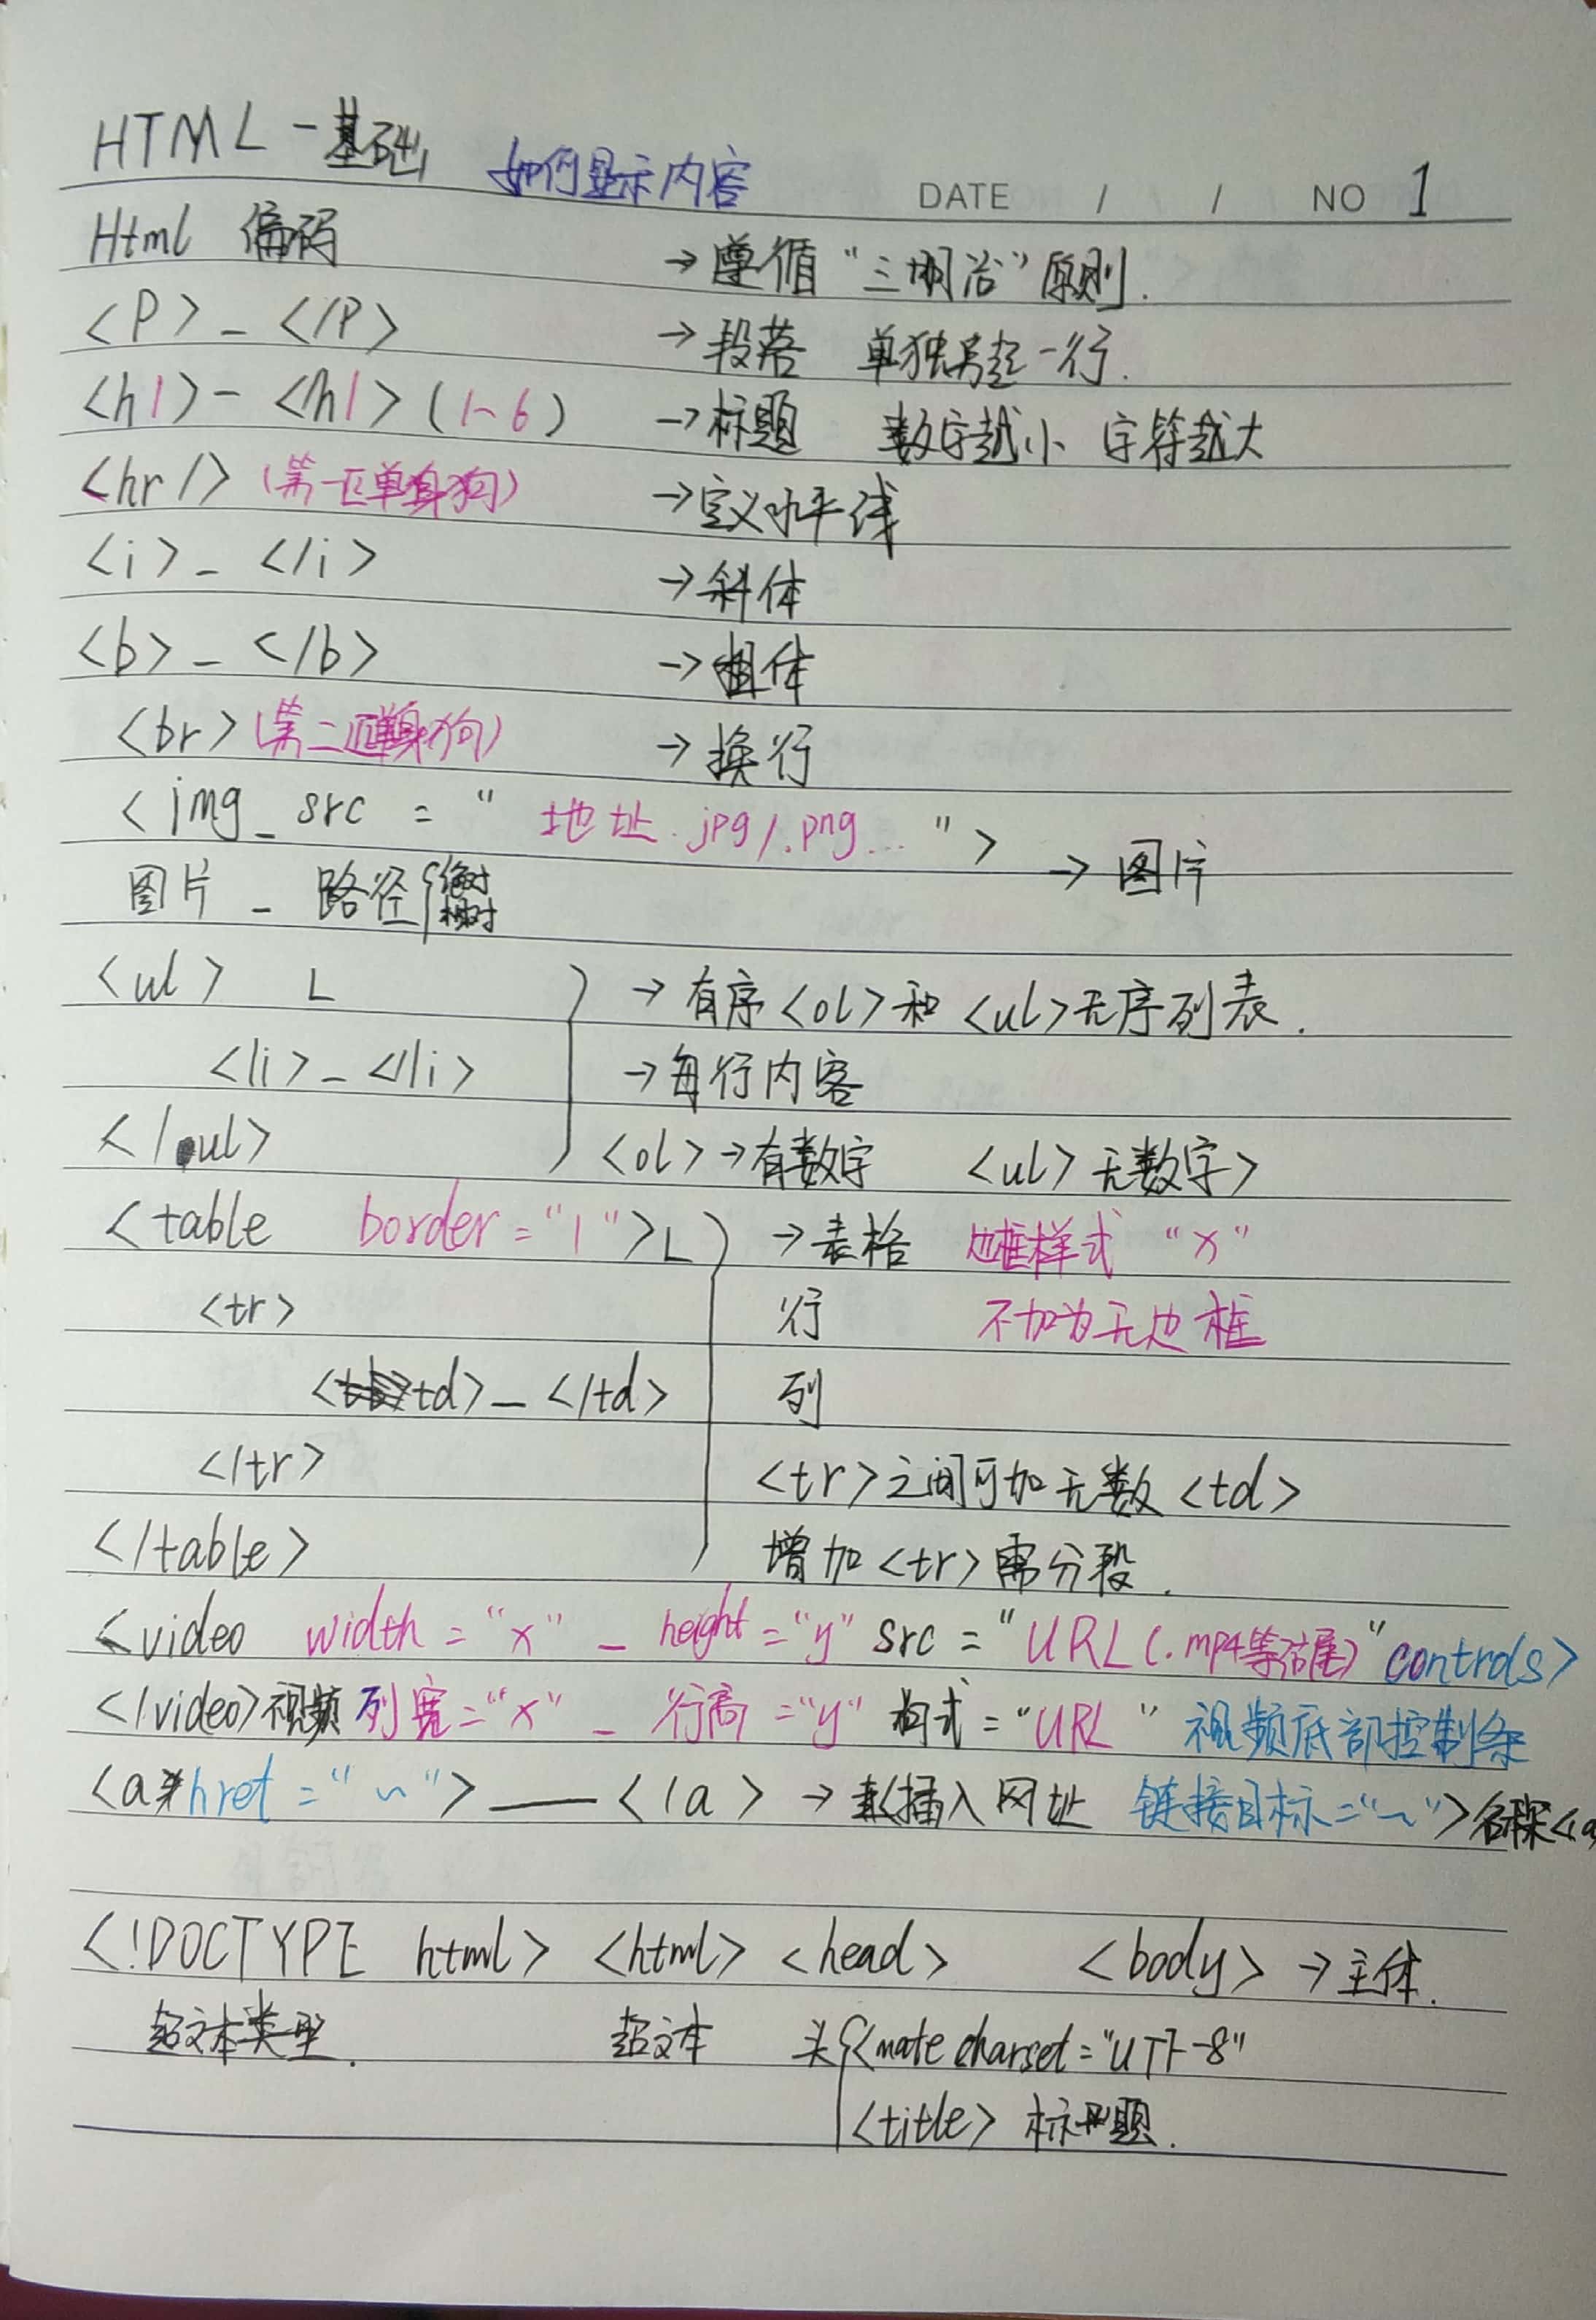 HTML - 基础 如何显示内容 DATE / / NO 1
Html 编码 → 遵循 “三明治” 原则.
<P> _ </P> → 段落 单独另起一行.
<h1> - </h1> (1~6) → 标题 数字越小 字符越大
<hr /> (第一匹单身狗) → 定义水平线
<i> _ </i> → 斜体
<b> _ </b> → 粗体
<br> (第二匹单身狗) → 换行
<img _ src = “ 地址.jpg/.png... ”> → 图片
图片 _ 路径 { 绝对
相对
<ul> L → 有序 <ol> 和 <ul> 无序列表.
<li> _ </li> → 每行内容
</ul> <ol> → 有数字 <ul> 无数字>
<table border = “1”> L → 表格 边框样式 “x”
<tr> 行 不加为无边框
<td> _ </td> 列
</tr> <tr> 之间可加无数 <td>
</table> 增加 <tr> 需分段.
<video width = “x” _ height = “y” src = “URL (.mp4等结尾)” controls>
</video> 视频 列宽 = “x” _ 行高 = “y” 格式 = “URL ” 视频底部控制条
<a href = “~”> — </a> → 插入网址 链接目标 = “~”> 名称 </a
<!DOCTYPE html> <html> <head> <body> → 主体.
超文本类型. 超文本 头 { <mate charset = “UTF-8”
<title> 标题.